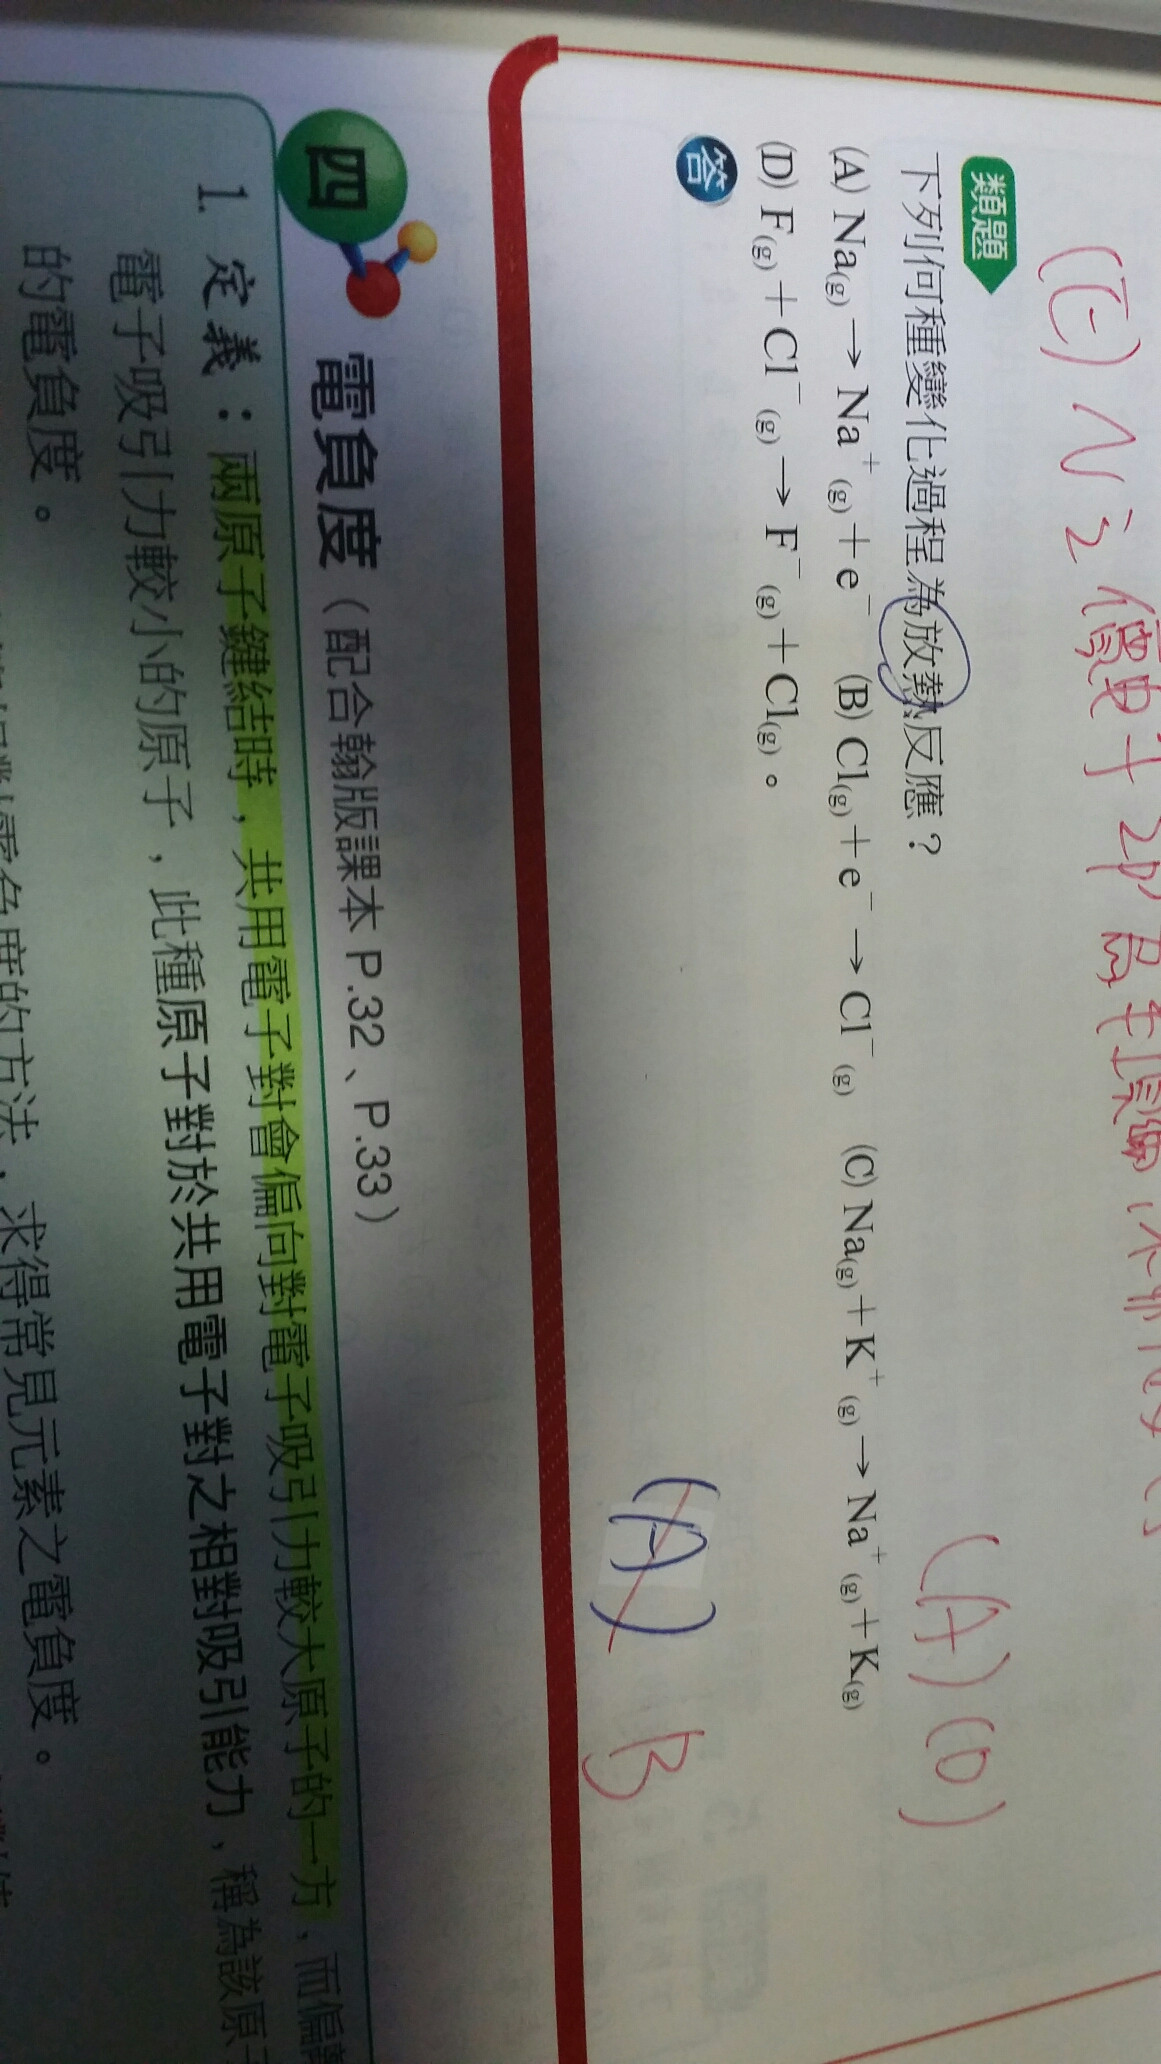 (E) N之價電子2p為
(A)(D)
類題
下列何種變化過程為放熱反應？
(A) Na(g) → Na⁺(g) + e⁻ (B) Cl(g) + e⁻ → Cl⁻(g) (C) Na(g) + K⁺(g) → Na⁺(g) + K(g)
(D) F(g) + Cl⁻(g) → F⁻(g) + Cl(g)。
答
(A) B
四 電負度（配合翰版課本 P.32、P.33）
1. 定義：兩原子鍵結時，共用電子對會偏向對電子吸引力較大原子的一方，而偏離
電子吸引力較小的原子，此種原子對於共用電子對之相對吸引能力，稱為該原
的電負度。
度的方法，求得常見元素之電負度。